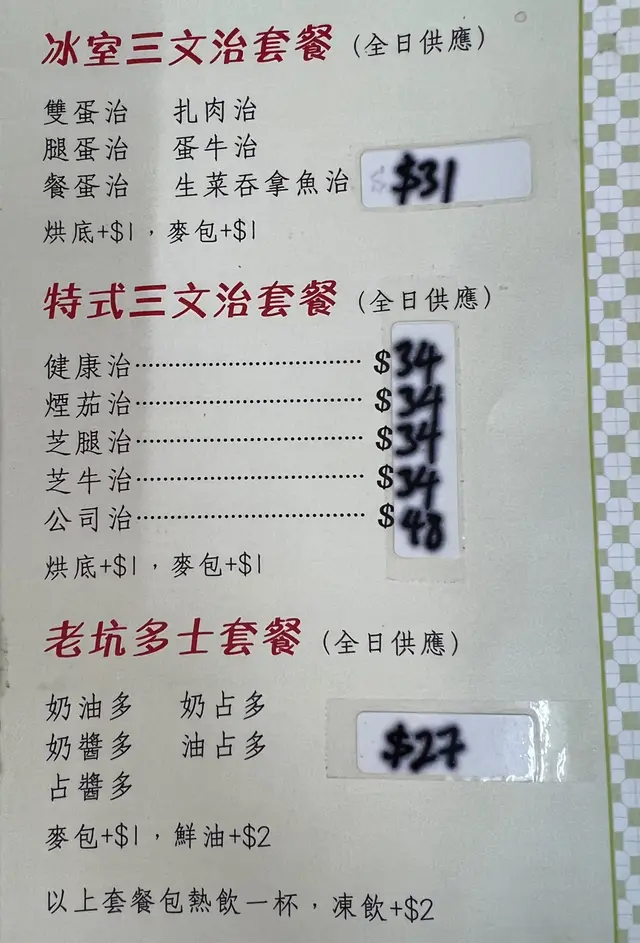 冰室三文治套餐（全日供應）
雙蛋治 扎肉治
腿蛋治 蛋牛治
餐蛋治 生菜吞拿魚治 $31
烘底+$1，麥包+$1
特式三文治套餐（全日供應）
健康治 $34
煙茄治 $34
芝腿治 $34
芝牛治 $34
公司治 $48
烘底+$1，麥包+$1
老坑多士套餐（全日供應）
奶油多 奶占多
奶醬多 油占多 $27
占醬多
麥包+$1，鮮油+$2
以上套餐包熱飲一杯，凍飲+$2